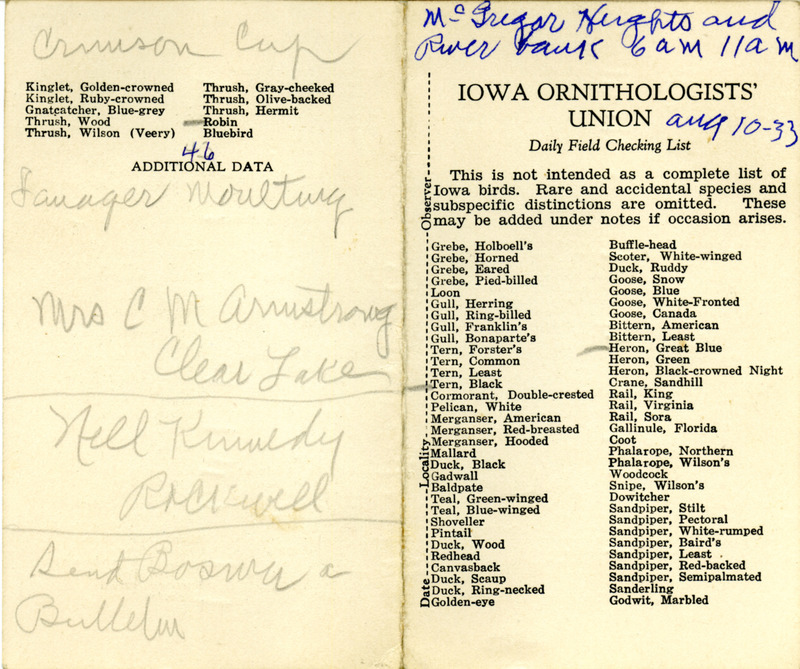 Crimson Cup
Kinglet, Golden-crowned
Kinglet, Ruby-crowned
Gnatcatcher, Blue-grey
Thrush, Wood
Thrush, Wilson (Veery)
Thrush, Gray-cheeked
Thrush, Olive-backed
Thrush, Hermit
Robin
Bluebird
46
ADDITIONAL DATA
Tanager Moulting
Mrs C M Armstrong
Clear Lake
Nell Kennedy
Rockwell
Send Boswer a
Bulletin
McGregor Heights and
River bank 6 am 11 am
IOWA ORNITHOLOGISTS'
UNION Aug 10-33
Daily Field Checking List
This is not intended as a complete list of
Iowa birds. Rare and accidental species and
subspecific distinctions are omitted. These
may be added under notes if occasion arises.
Date Locality Observer
Grebe, Holboell's
Grebe, Horned
Grebe, Eared
Grebe, Pied-billed
Loon
Gull, Herring
Gull, Ring-billed
Gull, Franklin's
Gull, Bonaparte's
Tern, Forster's
Tern, Common
Tern, Least
Tern, Black
Cormorant, Double-crested
Pelican, White
Merganser, American
Merganser, Red-breasted
Merganser, Hooded
Mallard
Duck, Black
Gadwall
Baldpate
Teal, Green-winged
Teal, Blue-winged
Shoveller
Pintail
Duck, Wood
Redhead
Canvasback
Duck, Scaup
Duck, Ring-necked
Golden-eye
Buffle-head
Scoter, White-winged
Duck, Ruddy
Goose, Snow
Goose, Blue
Goose, White-Fronted
Goose, Canada
Bittern, American
Bittern, Least
Heron, Great Blue
Heron, Green
Heron, Black-crowned Night
Crane, Sandhill
Rail, King
Rail, Virginia
Rail, Sora
Gallinule, Florida
Coot
Phalarope, Northern
Phalarope, Wilson's
Woodcock
Snipe, Wilson's
Dowitcher
Sandpiper, Stilt
Sandpiper, Pectoral
Sandpiper, White-rumped
Sandpiper, Baird's
Sandpiper, Least
Sandpiper, Red-backed
Sandpiper, Semipalmated
Sanderling
Godwit, Marbled